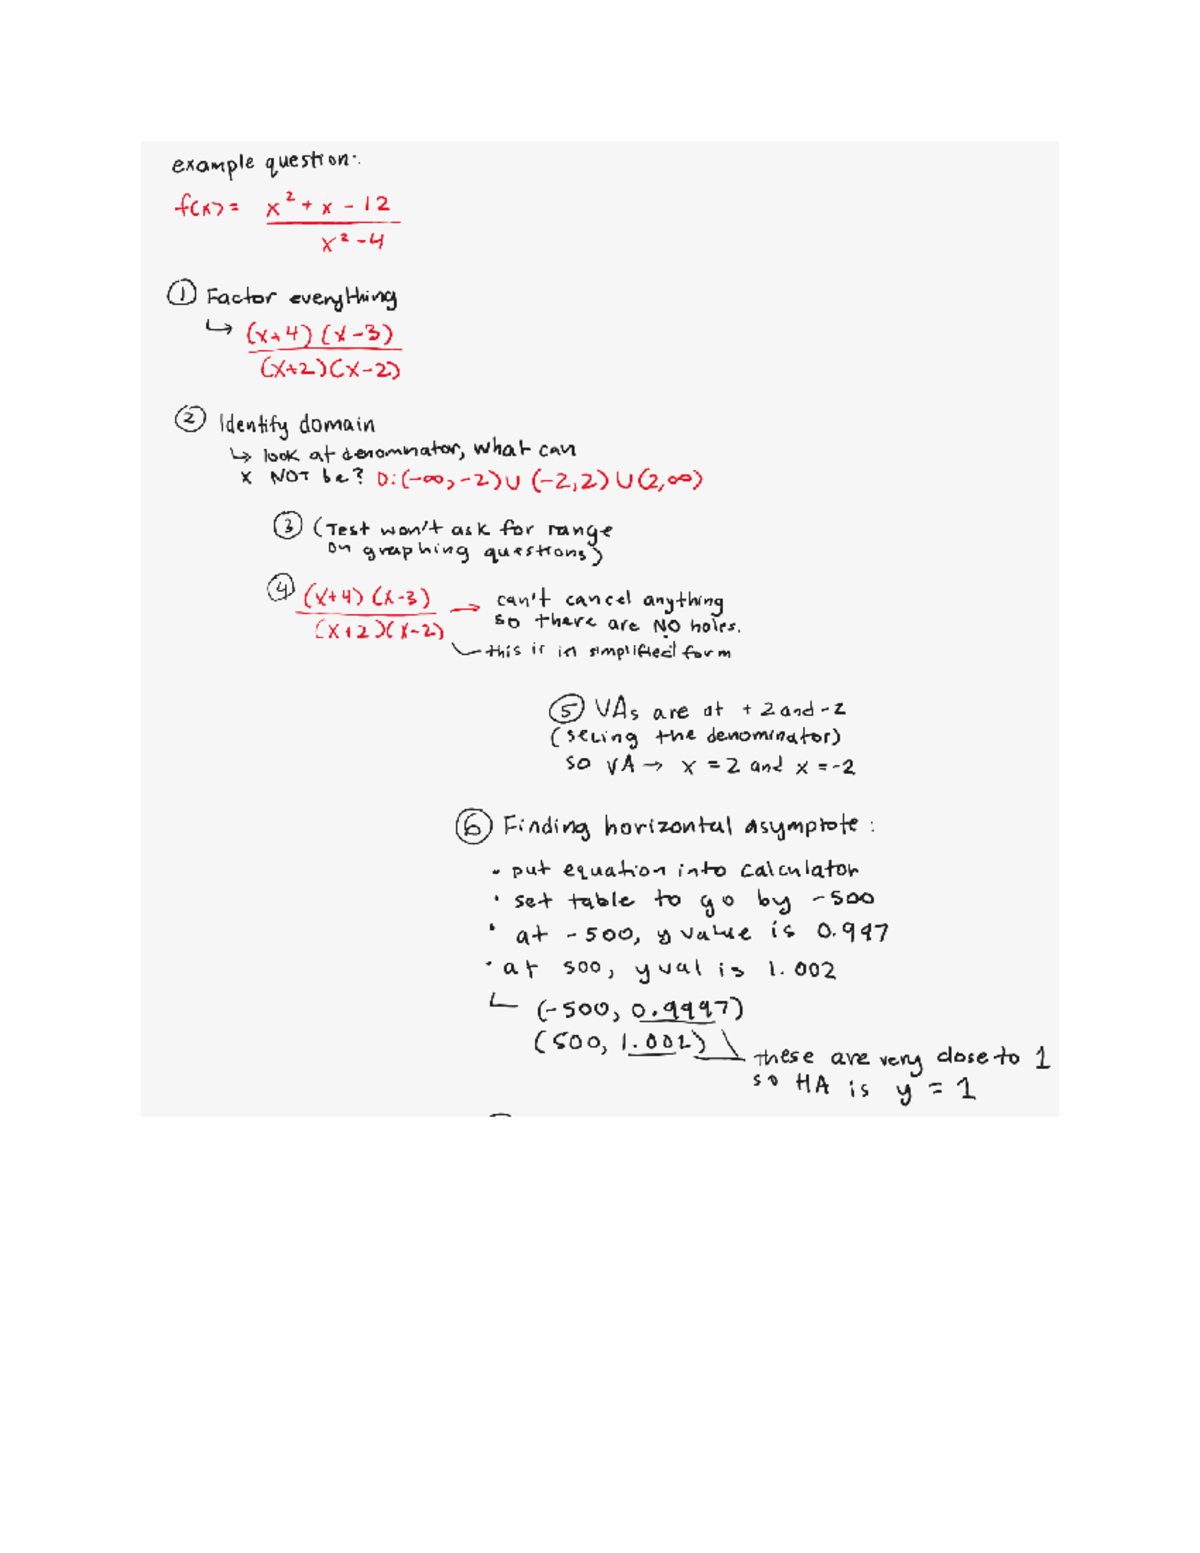 example question:
f(x) = x² + x - 12
x² - 4
① Factor everything
↳ (x+4)(x-3)
(x+2)(x-2)
② Identify domain
↳ look at denominator, what can
x NOT be? D: (-∞, -2) ∪ (-2, 2) ∪ (2, ∞)
③ (Test won't ask for range
on graphing questions)
④ (x+4)(x-3) → can't cancel anything
so there are NO holes.
(x+2)(x-2)
this is in simplified form
⑤ VAs are at +2 and -2
( the denominator)
so VA → x = 2 and x = -2
⑥ Finding horizontal asymptote:
• put equation into calculator
• set table to go by -500
• at -500, y value is 0.997
• at 500, y val is 1.002
(-500, 0.9997)
(500, 1.002)
these are very close to 1
so HA is y = 1